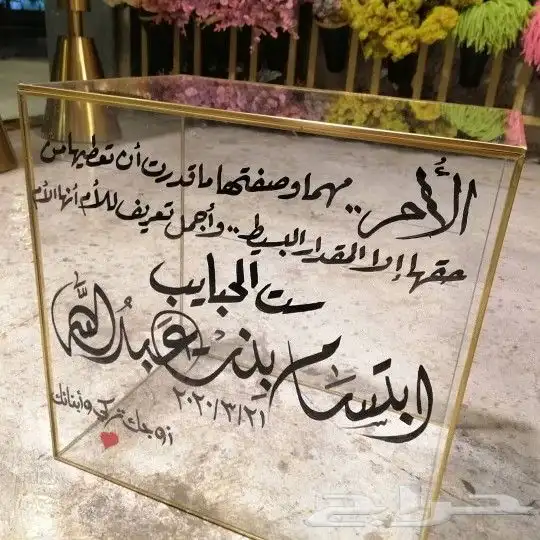 الأُمّ.. مهما وصفتها ما قدرت أن تعطيها من
حقها إلا المقدار البسيط.. وأجمل تعريف للأم أنها الأم
ست الحبايب
ابتسام بنت عبدالله
٢٠٢٠/٣/٢١
زوجك تركي وأبنائك
حراج